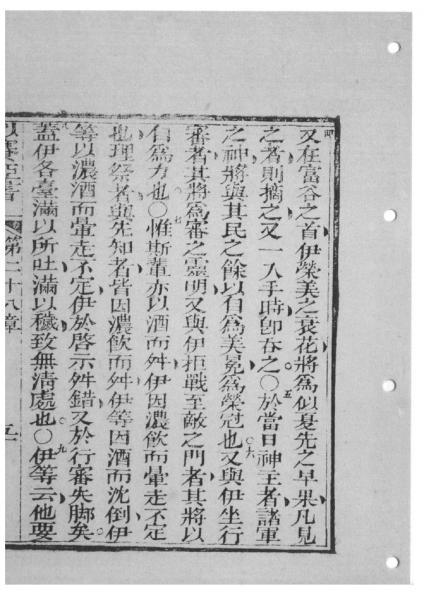 四
又在富谷之首伊榮美之衰花將為似夏先之早果凡見
之者則摘之又一入手時卽吞之○五於當日神主者諸軍
之神將與其民之餘以自為美冕為榮冠也○六又與伊坐行
審者其將為審之靈明又與伊拒戰至敵之門者其將以
自為力也○七惟斯輩亦以酒而舛伊因濃飲而暈走不定
也理祭者與先知者皆因濃飲而舛伊等因酒而沈倒伊
等以濃酒而暈走不定伊於啓示舛錯又於行審失腳矣○
八蓋伊各臺滿以所吐滿以穢致無清處也○九伊等云他要
以賽亞書 第二十八章